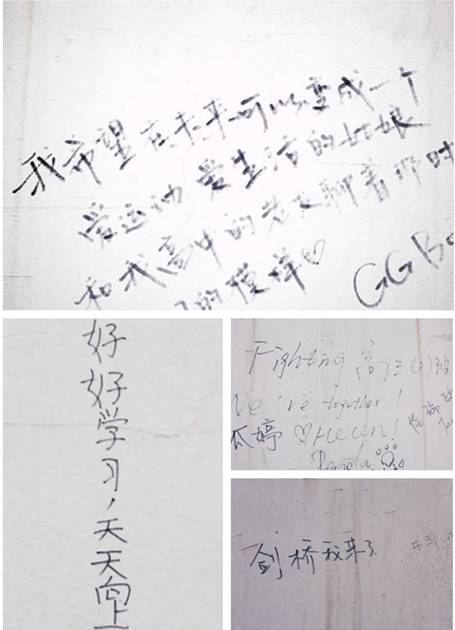 我希望在未来可以变成一个
爱运动 爱生活的姑娘
和我高中的老友聊着那时
的模样♡
GGB
好好学习，天天向上
Fighting 高三(3)班
We're together!
婷 ♡Helen!
Panda
剑桥我来了